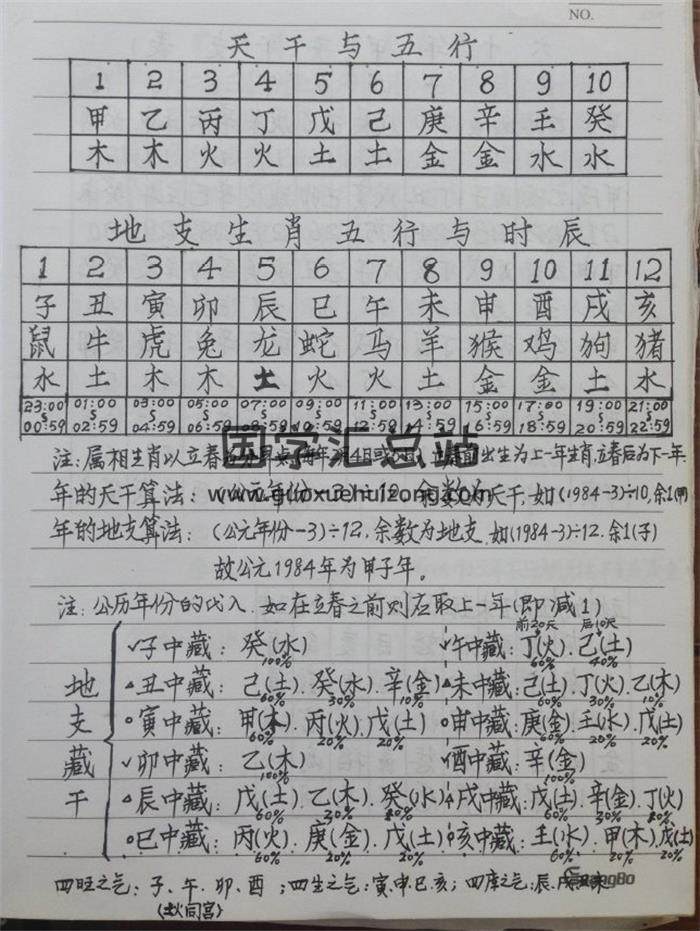 NO.
天干与五行
1 2 3 4 5 6 7 8 9 10
甲 乙 丙 丁 戊 己 庚 辛 壬 癸
木 木 火 火 土 土 金 金 水 水
地支生肖五行与时辰
1 2 3 4 5 6 7 8 9 10 11 12
子 丑 寅 卯 辰 巳 午 未 申 酉 戌 亥
鼠 牛 虎 兔 龙 蛇 马 羊 猴 鸡 狗 猪
水 土 木 木 土 火 火 土 金 金 土 水
23:00 01:00 03:00 05:00 07:00 09:00 11:00 13:00 15:00 17:00 19:00 21:00
00:59 02:59 04:59 06:59 08:59 10:59 12:59 14:59 16:59 18:59 20:59 22:59
国学汇总站
注:属相生肖以立春为分界点(每年2月4日或 出生为上一年生肖,立春后为下一年.
www.guoxuehuizong.com
年的天干算法: (公元年份-3)÷10, 余数为天干,如(1984-3)÷10,余1(甲)
年的地支算法: (公元年份-3)÷12,余数为地支,如(1984-3)÷12.余1(子)
故公元1984年为甲子年。
注:公历年份的代入,如在立春之前则应取上一年(即减1)
前20天 后10天
✓子中藏: 癸(水) ✓午中藏:丁(火).己(土)
100% 60% 40%
△丑中藏: 己(土).癸(水).辛(金) △未中藏:己(土).丁(火).乙(木)
60% 30% 10% 60% 30% 10%
○寅中藏: 甲(木).丙(火).戊(土) ○申中藏:庚(金).壬(水).戊(土)
60% 20% 20% 60% 20% 20%
✓卯中藏: 乙(木) ✓酉中藏:辛(金)
100% 100%
地支藏干
△辰中藏: 戊(土).乙(木).癸(水) △戌中藏:戊(土).辛(金).丁(火)
60% 30% 60% 30%
○巳中藏: 丙(火).庚(金).戊(土) ○亥中藏:壬(水).甲(木).戊(土)
60% 20% 20% 60% 20% 20%
四旺之气:子、午.卯、酉;四生之气:寅.申.巳.亥;四库之气:辰.戌.丑.未
(水火同宫)